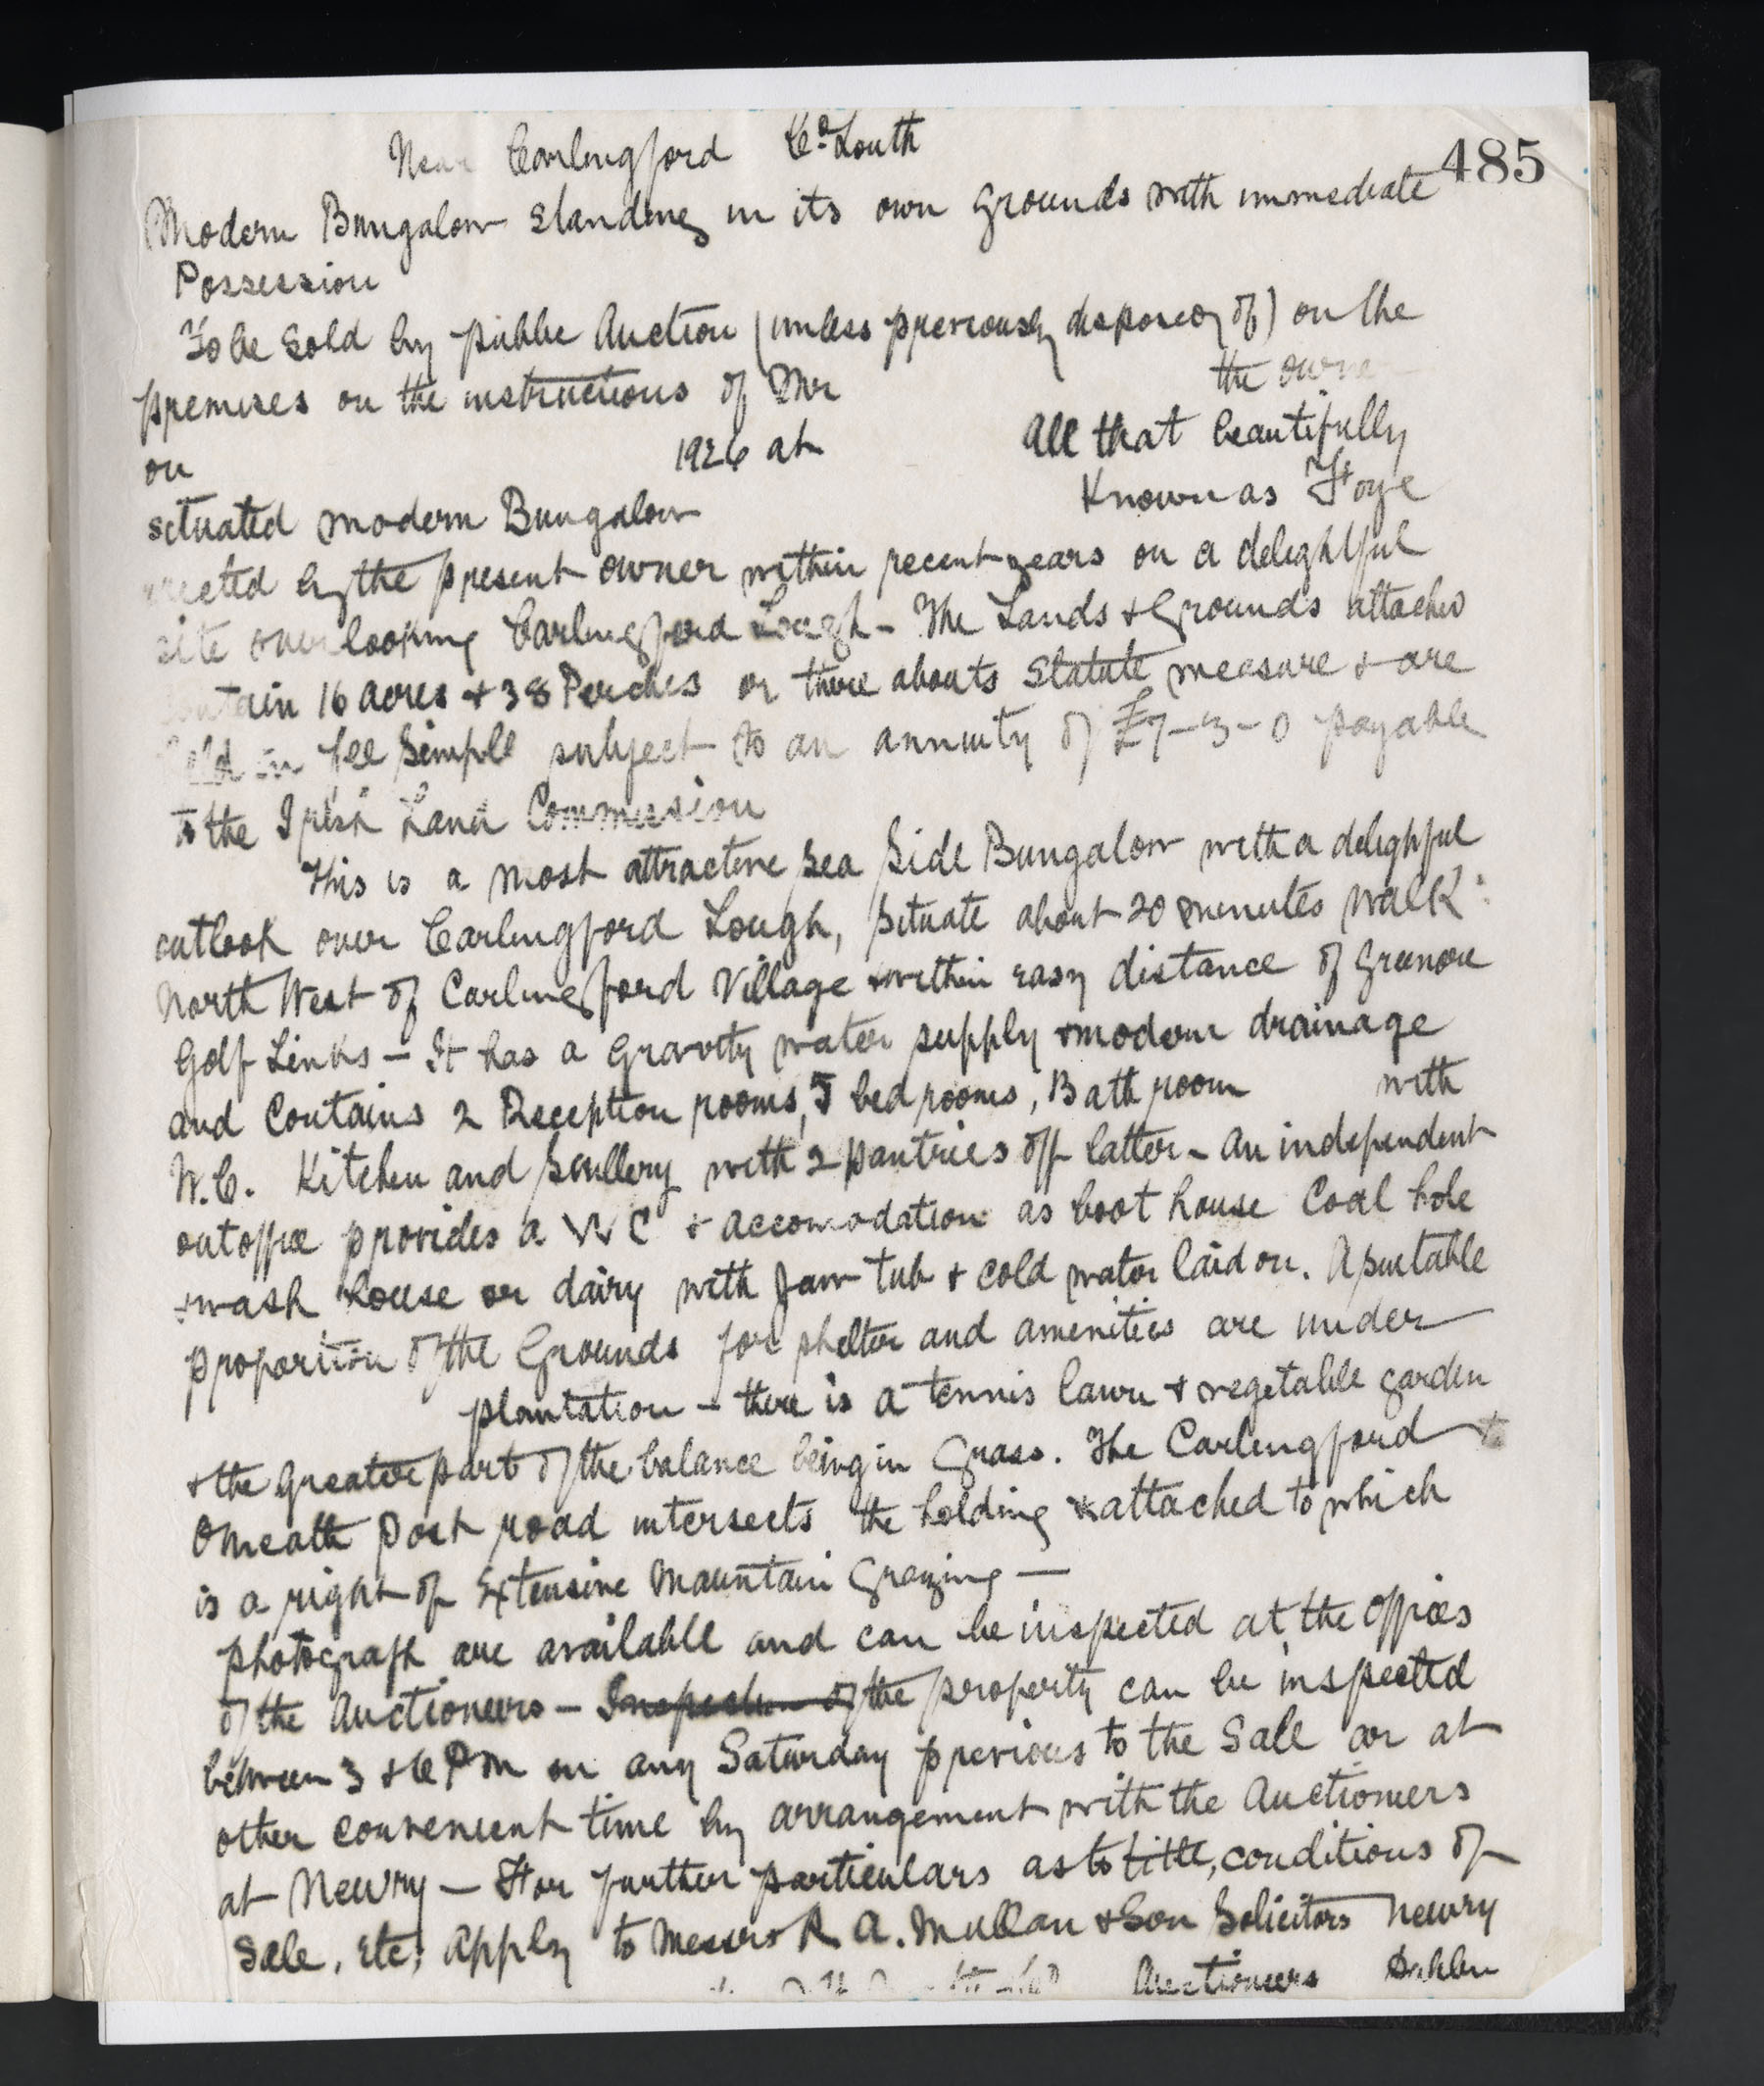 485
Near Carlingford Co. Louth
Modern Bungalow standing in its own Grounds with immediate
Possession
To be Sold by public Auction (unless previously disposed of) on the
premises on the instructions of Mr the owne
on 1926 at All that beautifully
situated modern Bungalow Known as
erected by the present owner within recent years on a delightful
site overlooking Carlingford Lough - The Lands & Grounds attached
contain 16 acres & 38 Perches or there abouts Statute measure & are
held in fee Simple subject to an annuity of £7-3-0 payable
to the Irish Land Commission
This is a most attractive Sea Side Bungalow with a delighful
outlook over Carlingford Lough, situate about 20 minutes walk
North West of Carlingford Village & within easy distance of Greenore
Golf Links - It has a Gravity water supply & modern drainage
and Contains 2 Reception rooms, 5 bed rooms, Bath room with
W.C. Kitchen and Scullery with 2 pantries off latter - An independent
outoffice provides a WC & accomodation as boot house Coal hole
& wash house or dairy with Jaw tub & cold water laid on. A suitable
proportion of the Grounds for shelter and amenities are under
plantation - there is a tennis lawn & vegetable garden
& the Greater part of the balance being in Grass. The Carlingford to
Omeath Post road intersects the holding & attached to which
is a right of Extensive Mountain Grazing —
photograph are available and can be inspected at the offices
of the Auctioneers - Inspection of the property can be inspected
between 3 & 6 PM on any Saturday previous to the Sale or at
other convenient time by arrangement with the Auctioneers
at Newry — For further particulars as to title, conditions of
Sale, etc; Apply to Messrs R. A. Mullan & Son Solicitors Newry
Auctioneers Dublin